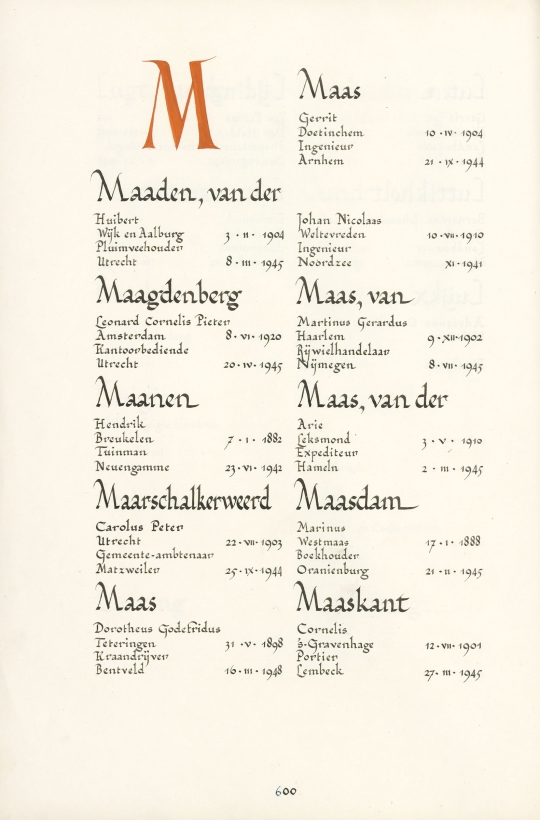 M
Maaden, van der
Huibert
Wijk en Aalburg 3 · II · 1904
Pluimveehouder
Utrecht 8 · III · 1945
Maagdenberg
Leonard Cornelis Pieter
Amsterdam 8 · VI · 1920
Kantoorbediende
Utrecht 20 · IV · 1945
Maanen
Hendrik
Breukelen 7 · I · 1882
Tuinman
Neuengamme 23 · VI · 1942
Maarschalkerweerd
Carolus Peter
Utrecht 22 · VII · 1903
Gemeente-ambtenaar
Matzweiler 25 · IX · 1944
Maas
Dorotheus Godefridus
Teteringen 31 · V · 1898
Kraandrijver
Bentveld 16 · III · 1948
Maas
Gerrit
Doetinchem 10 · IV · 1904
Ingenieur
Arnhem 21 · IX · 1944
Johan Nicolaas
Weltevreden 10 · VII · 1910
Ingenieur
Noordzee XI · 1941
Maas, van
Martinus Gerardus
Haarlem 9 · XII · 1902
Rijwielhandelaar
Nijmegen 8 · VII · 1945
Maas, van der
Arie
Leksmond 3 · V · 1910
Expediteur
Hameln 2 · III · 1945
Maasdam
Marinus
Westmaas 17 · I · 1888
Boekhouder
Oranienburg 21 · II · 1945
Maaskant
Cornelis
's-Gravenhage 12 · VII · 1901
Portier
Lembeck 27 · III · 1945
600